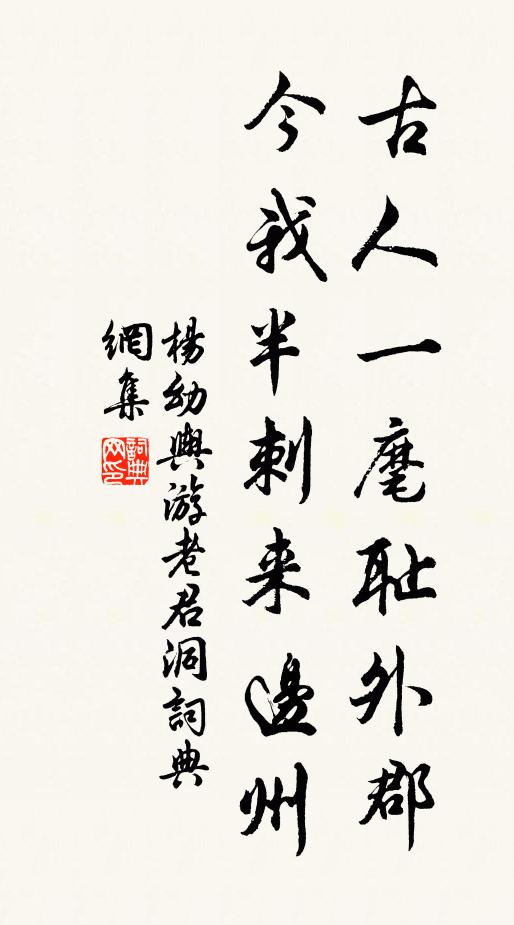 古人一麾耻外郡
今我半刺来邊州
楊幼輿游老君洞詞典
網集
詞典网印